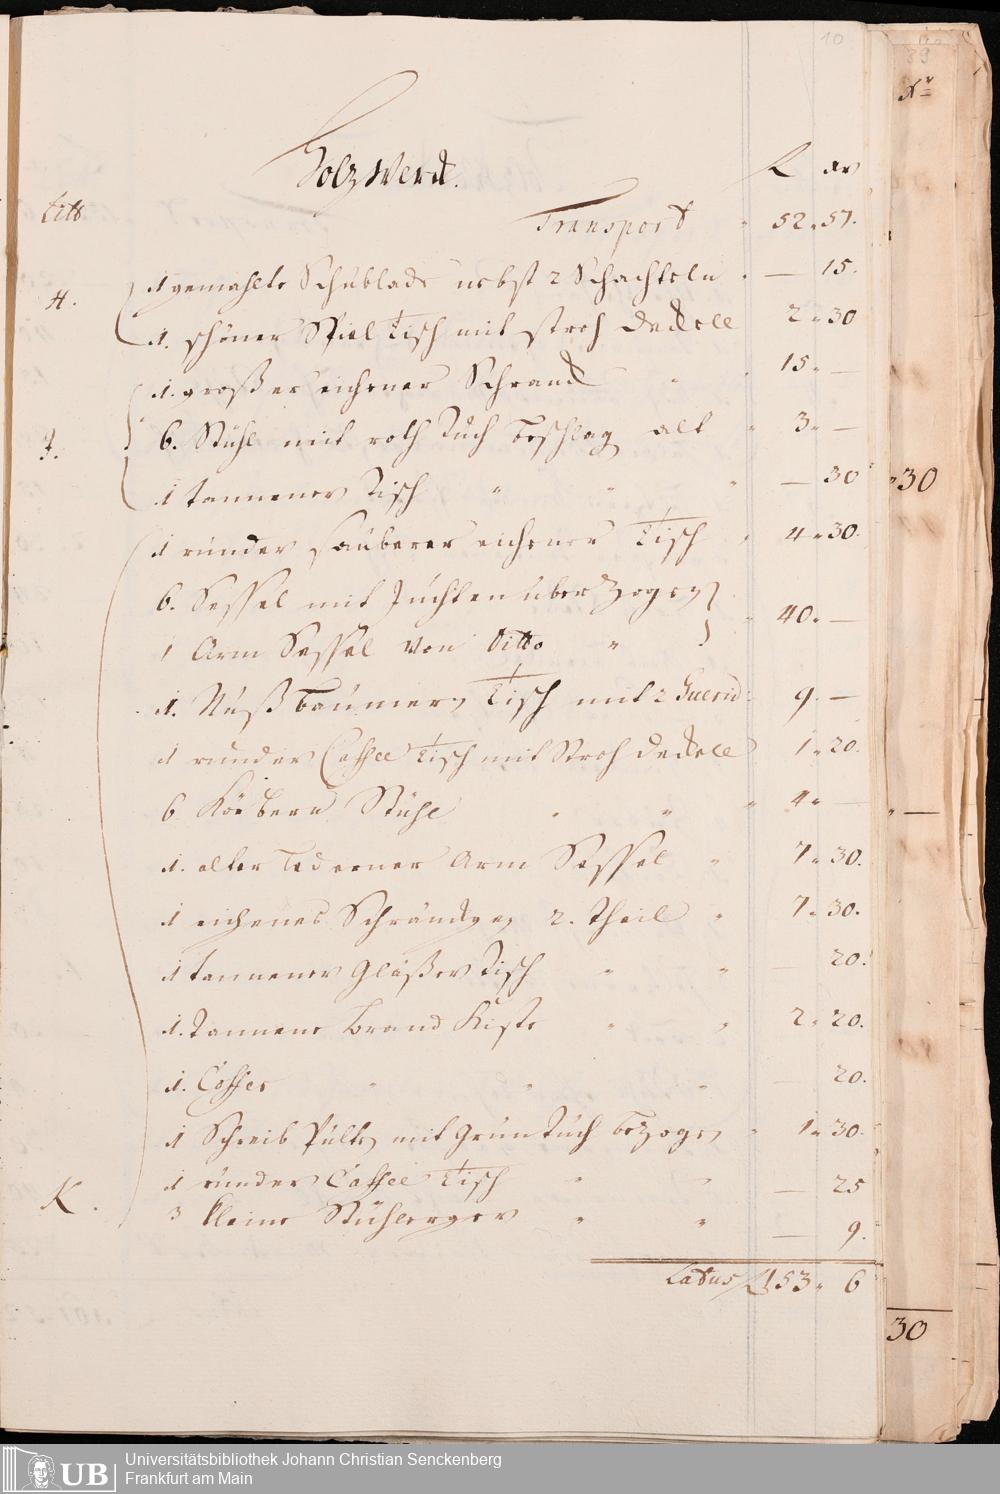 10
HolzWerck.
fl xr
Litt
Transport " 52 " 57.
H.
1 gemahlte Schublade nebst 2 Schachteln " — 15.
1. schöner Spiel Tisch mit stroh Deckell 2 " 30
1. großer eichener Schranck " 15 " —
J.
6. Stühl mit roth Tuch beschlag alt " 3 " —
1 tannener Tisch " " " — 30
1 runder sauberer eichener Tisch " 4 " 30.
6. Sessel mit Juchten überzogen
1 Arm Sessel von Ditto " " 40. —
1. Nußbaumen Tisch mit 2 Guerid: 9. —
1 runder Caffee Tisch mit Stroh Deckell 1 " 20.
6 Körbern Stühl " " " 4 " —
1. alter lederner Arm Sessel " 7 " 30.
1 eichenes Schränckgen 2. Theil " 7 " 30.
1 tannener Gläßer Tisch " " — 20.
1. Tannene Brand Kiste " " 2 " 20.
1. Coffer " " " — 20.
1 Schreib Pult mit Grün Tuch bezogen " 1 " 30.
1 runder Caffee Tisch " " — 25
K.
3 kleine Stühlerger " " — 9.
Latus fl 153 " 6
89
Xr
" 30
" —
30
UB
Universitätsbibliothek Johann Christian Senckenberg
Frankfurt am Main